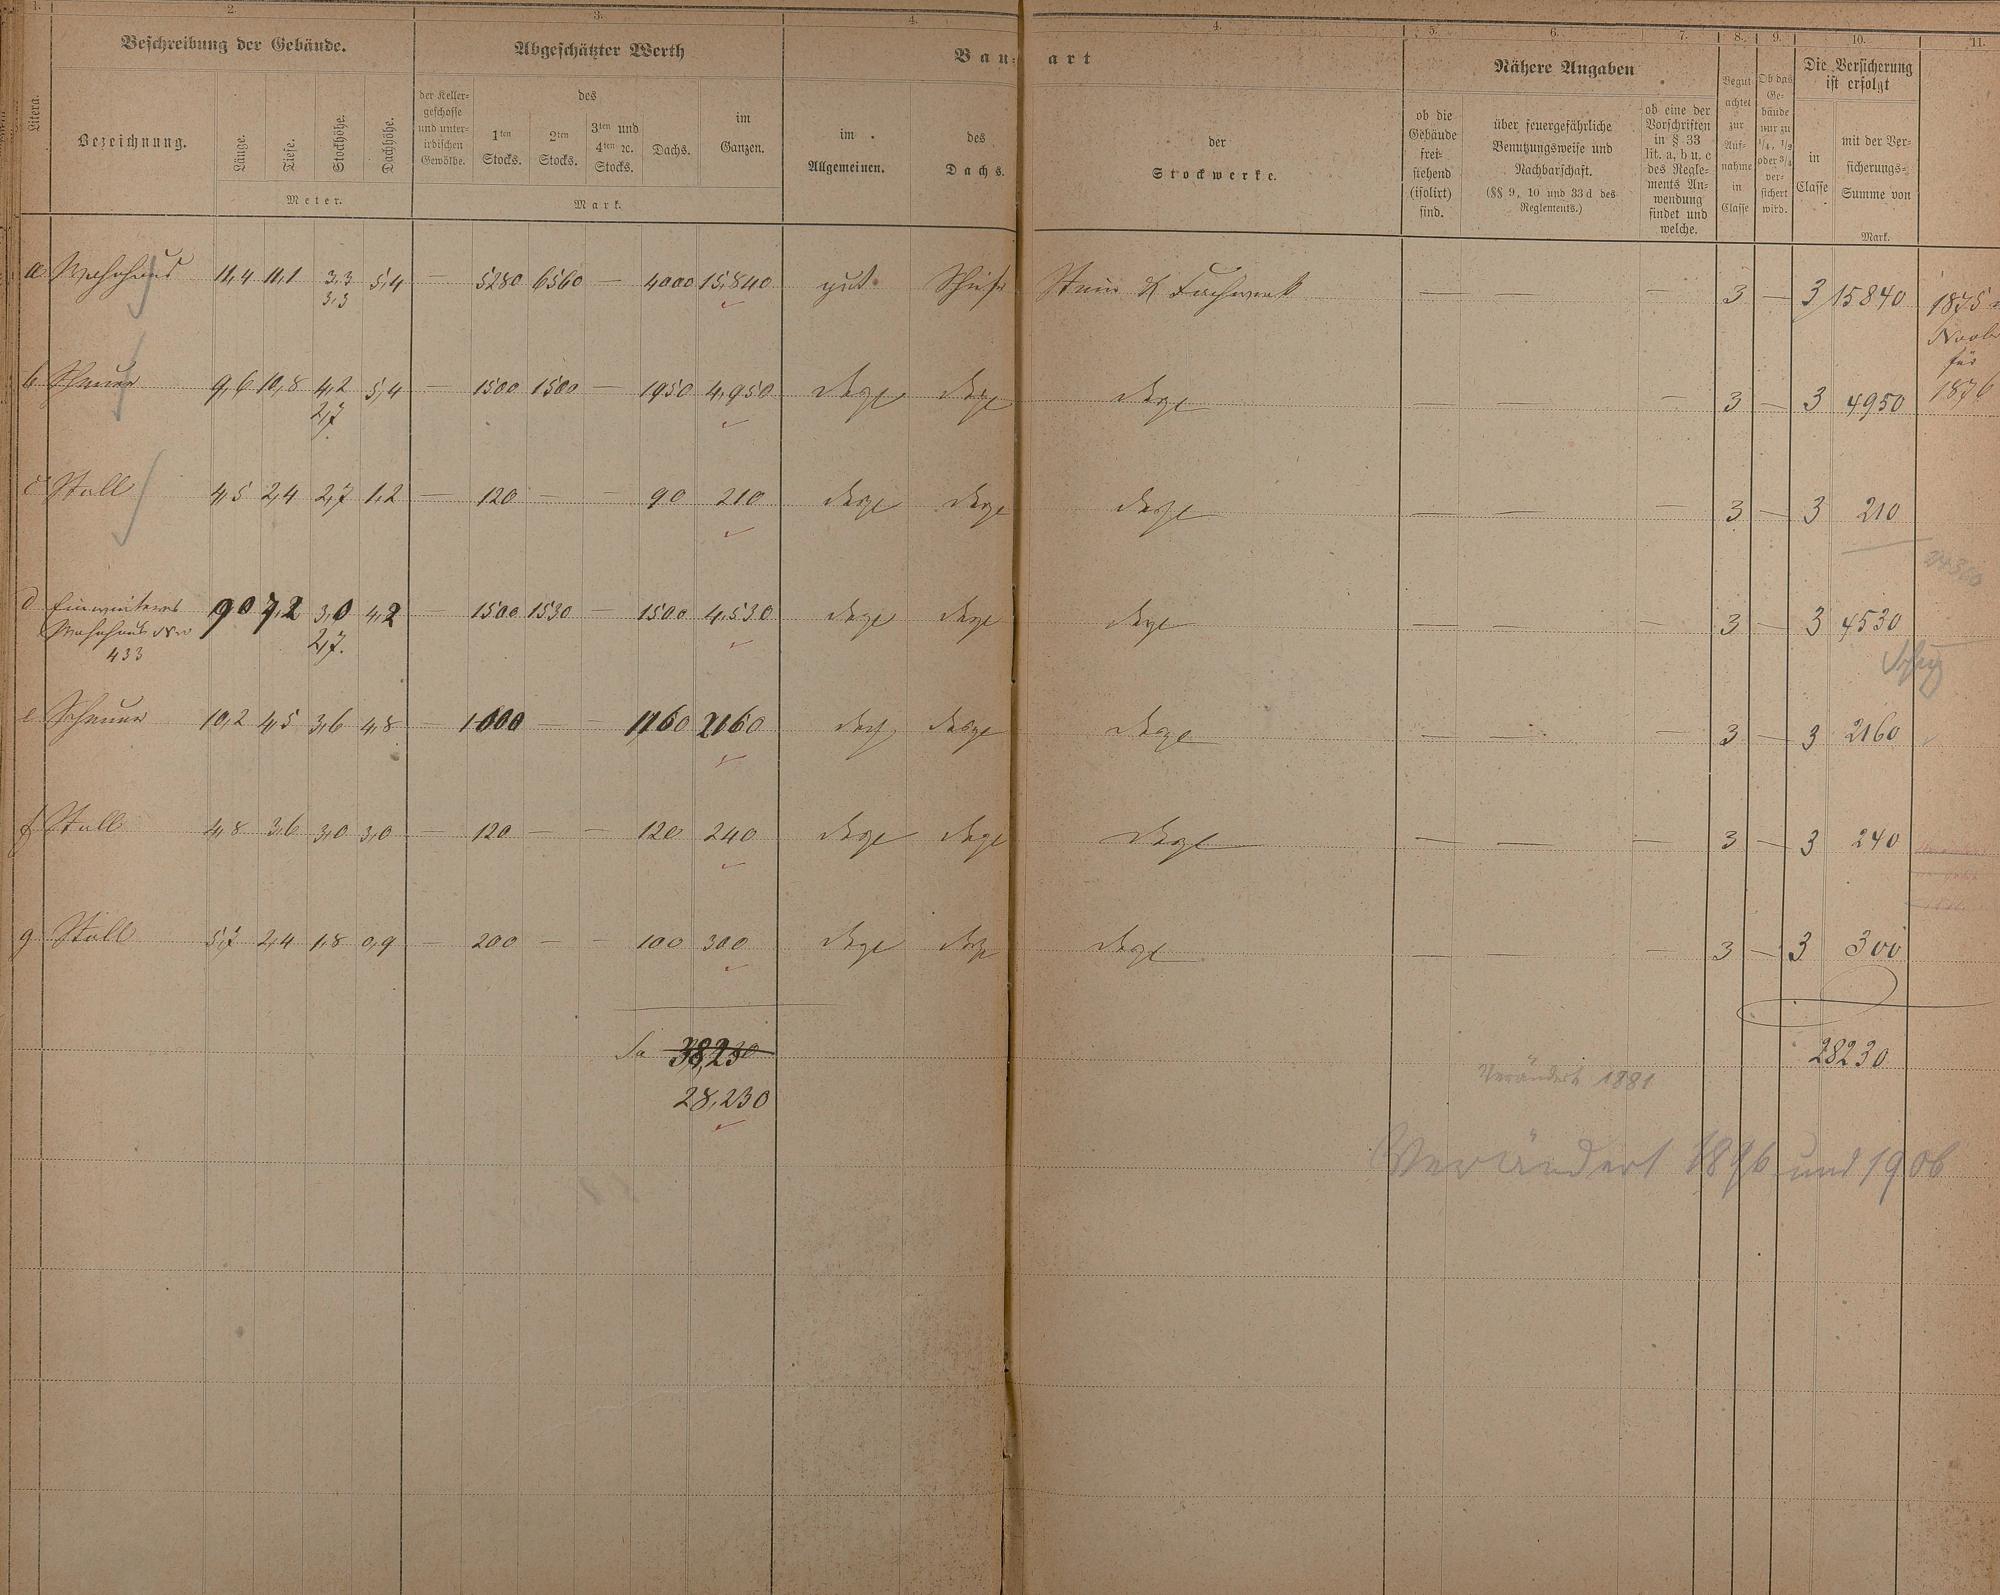 1. 2. 3. 4. 4. 5. 6. 7. 8. 9. 10. 11.
Beschreibung der Gebäude. Abgeschätzter Werth Bau- art Nähere Angaben Die Versicherung
ist erfolgt
Litera. Bezeichnung. Länge. Tiefe. Stockhöhe. Dachhöhe.
Meter.
der Keller-
geschosse
und unter-
irdischen
Gewölbe.
des
1ten
Stocks.
2ten
Stocks.
3ten und
4ten 2c.
Stocks.
Dachs.
im
Ganzen.
Mark.
im
Allgemeinen.
des
Dachs.
der
Stockwerke.
ob die
Gebäude
frei-
stehend
(isolirt)
sind.
über feuergefährliche
Benutzungsweise und
Nachbarschaft.
(§§ 9, 10 und 33 d des
Reglements.)
ob eine der
Vorschriften
in § 33
lit. a, b u. c
des Regle-
ments An-
wendung
findet und
welche.
Begut
achtet
zur
Auf-
nahme
in
Classe
Ob das
Ge-
bäude
nur zu
1/4, 1/2
oder 3/4
ver-
sichert
wird.
in
Classe
mit der Ver-
sicherungs-
Summe von
Mark.
a Wohnhaus 11,4 11,1 3,3 5,4 — 5280 6560 — 4000 15,840 gut Schiefer Stein & Fachwerk — — — 3 — 3 15840 1875
3,3
für
1876
b Scheuer 9,6 10,8 4,2 5,4 — 1500 1500 — 1950 4,950 desgl desgl desgl — — — 3 — 3 4950
2,7
c Stall 4,5 2,4 2,7 1,2 — 120 — — 90 210 desgl desgl desgl — — — 3 — 3 210
24300
d Ein weiteres 9,0 7,2 3,0 4,2 — 1500 1530 — 1500 4,530 desgl desgl desgl — — — 3 — 3 4530
Wohnhaus Nro 2,7.
433
e Scheuer 10,2 4,5 3,6 4,8 — 1000 — — 1160 2160 desgl desgl desgl — — — 3 — 3 2160
f Stall 4,8 3,6 3,0 3,0 — 120 — — 120 240 desgl desgl desgl — — — 3 — 3 240
g Stall 5,7 2,4 1,8 0,9 — 200 — — 100 300 desgl desgl desgl — — — 3 — 3 300
Sa 38,230 28230
28,230
Verändert 1881
Verändert 1896 und 1906